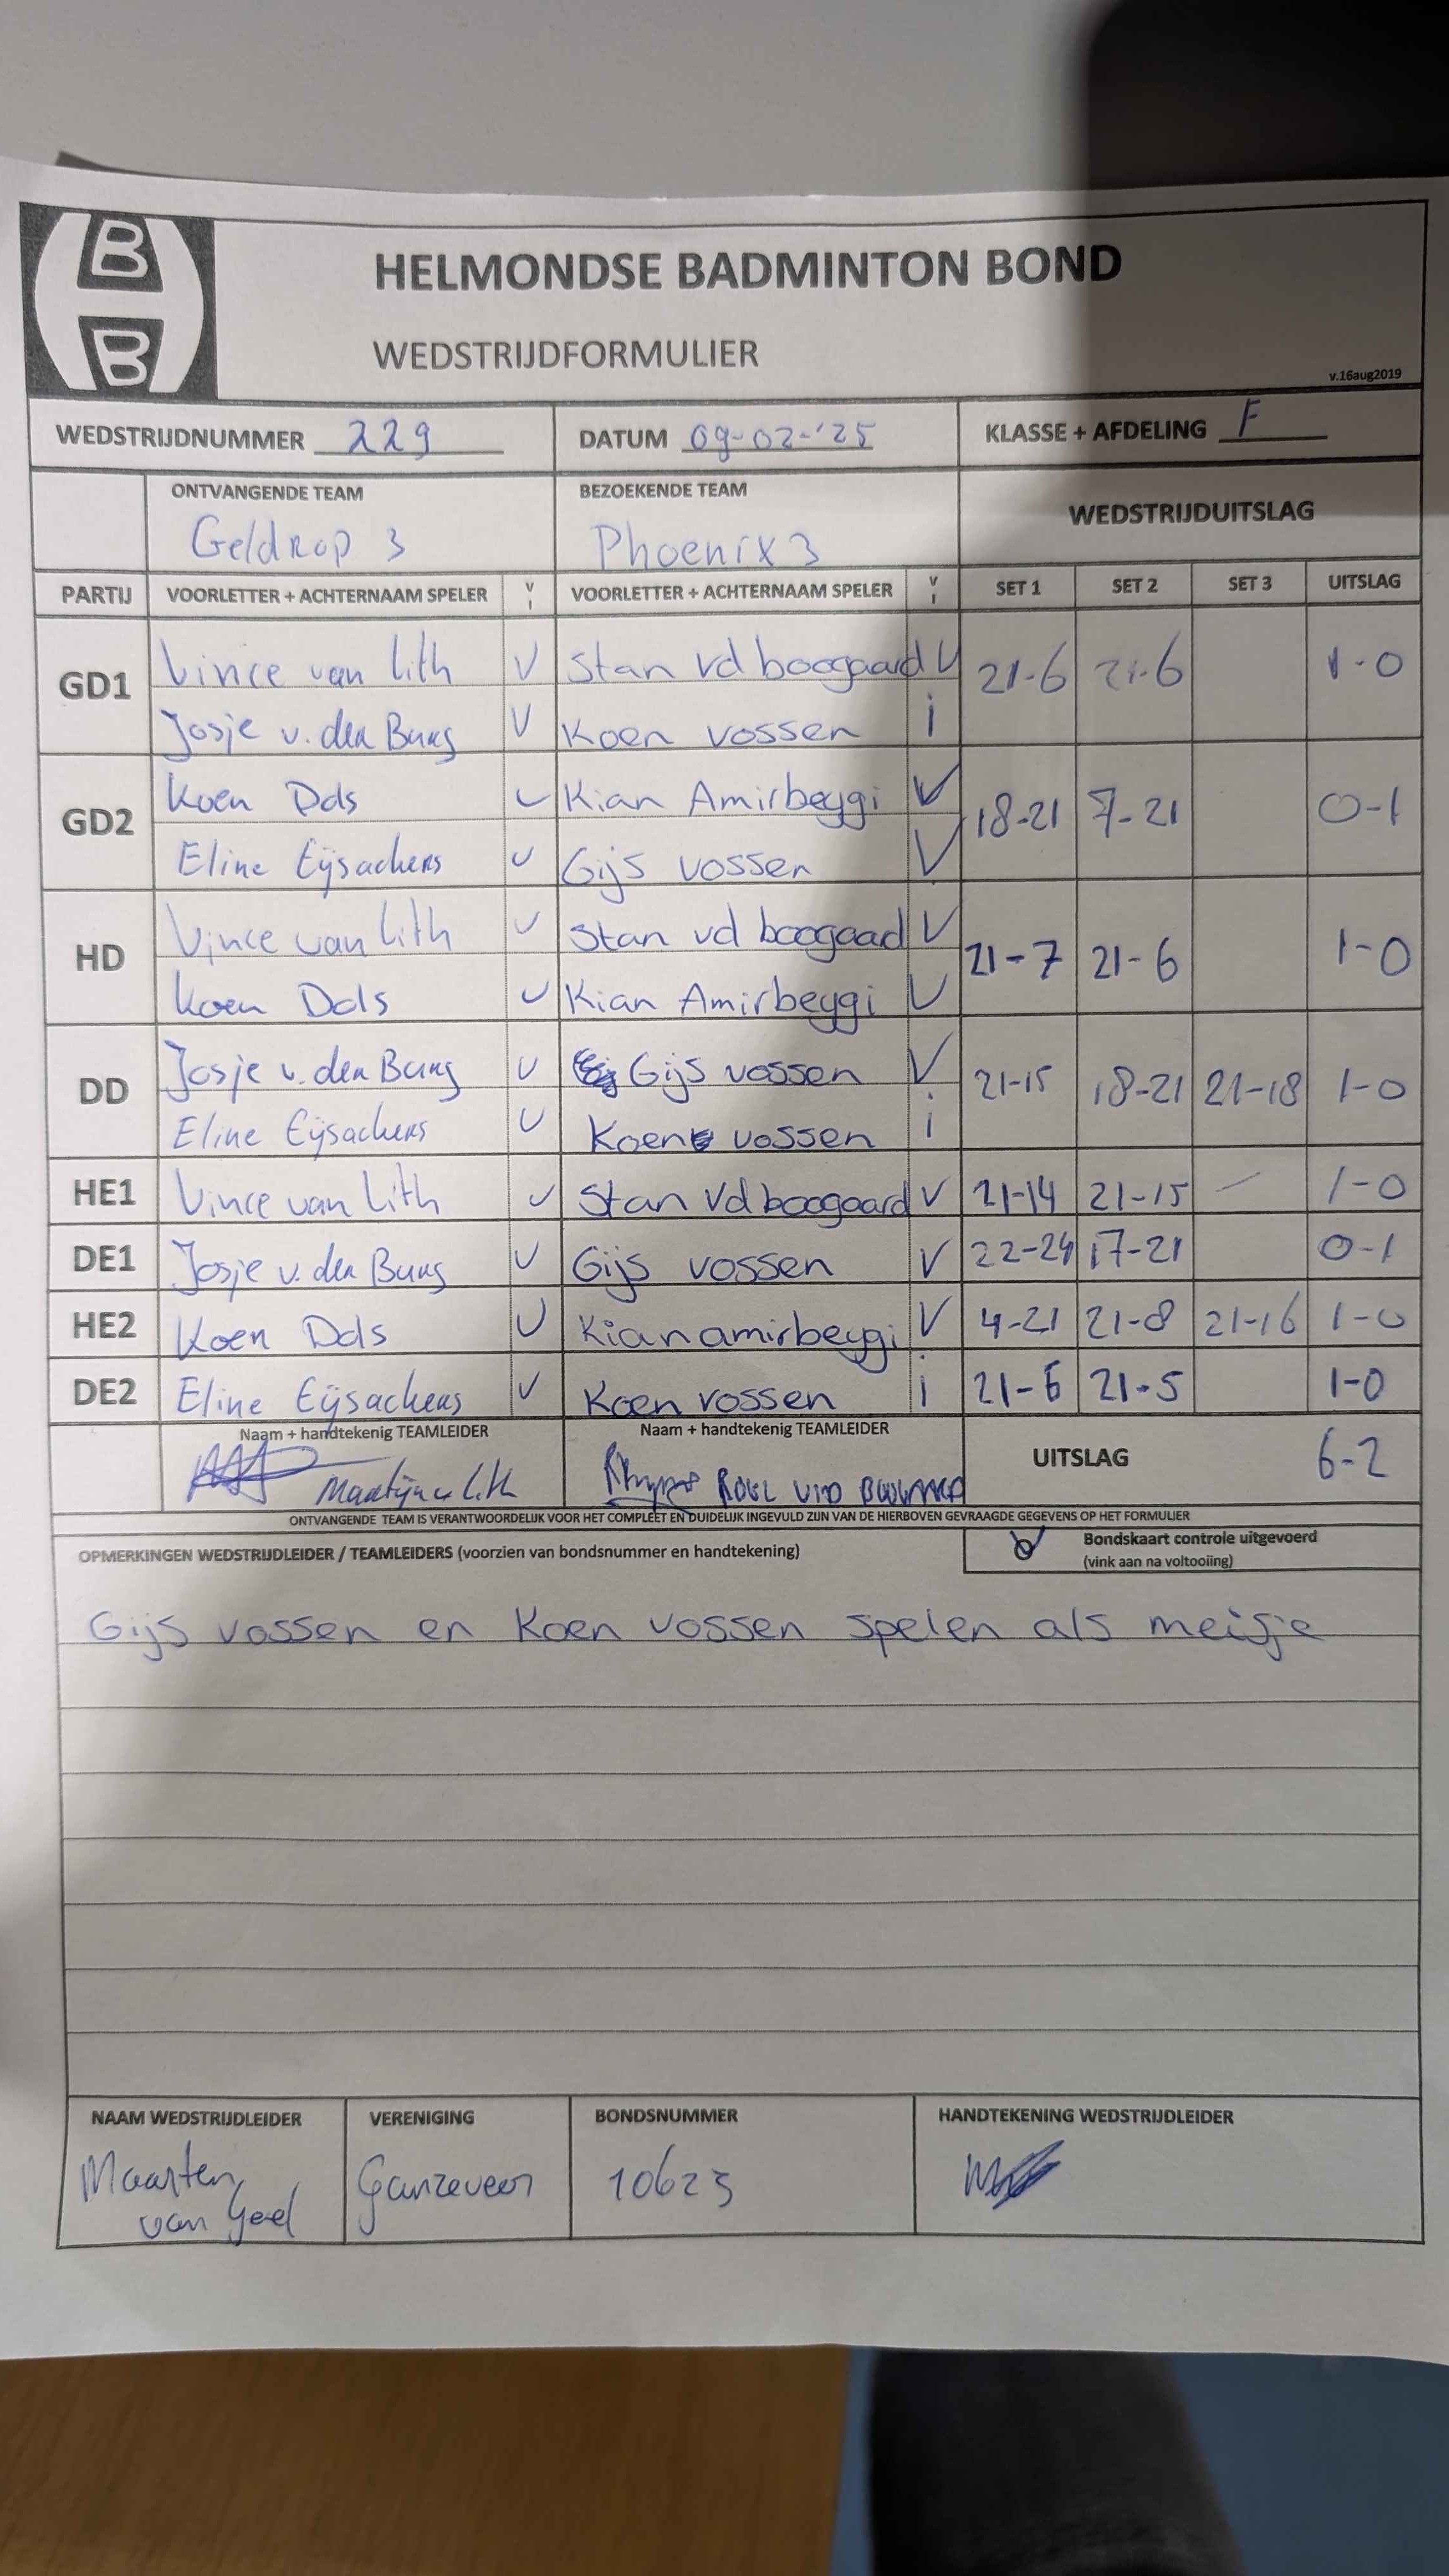 B
B
HELMONDSE BADMINTON BOND
WEDSTRIJDFORMULIER
v.16aug2019
WEDSTRIJDNUMMER 229 DATUM 09-02-'25 KLASSE + AFDELING F
ONTVANGENDE TEAM BEZOEKENDE TEAM WEDSTRIJDUITSLAG
Geldrop 3 Phoenix 3
PARTIJ VOORLETTER + ACHTERNAAM SPELER V I VOORLETTER + ACHTERNAAM SPELER V I SET 1 SET 2 SET 3 UITSLAG
GD1 Vince van Lith V Stan vd boogaard V 21-6 21-6 1-0
Josje v. den Burg V Koen vossen i
GD2 Koen Dols V Kian Amirbeygi V 18-21 7-21 0-1
Eline Eijsackers V Gijs vossen V
HD Vince van Lith V Stan vd boogaad V 21-7 21-6 1-0
Koen Dols V Kian Amirbeygi V
DD Josje v. den Burg V Gijs vossen V 21-15 18-21 21-18 1-0
Eline Eijsackers V Koen vossen i
HE1 Vince van Lith V Stan Vd boogaard V 21-14 21-15 - 1-0
DE1 Josje v. den Burg V Gijs vossen V 22-24 17-21 0-1
HE2 Koen Dols V Kian amirbeygi V 4-21 21-8 21-16 1-0
DE2 Eline Eijsackers V Koen vossen i 21-6 21-5 1-0
Naam + handtekenig TEAMLEIDER Naam + handtekenig TEAMLEIDER UITSLAG 6-2
Martijn v Lith ROEL VAN
ONTVANGENDE TEAM IS VERANTWOORDELIJK VOOR HET COMPLEET EN DUIDELIJK INGEVULD ZIJN VAN DE HIERBOVEN GEVRAAGDE GEGEVENS OP HET FORMULIER
OPMERKINGEN WEDSTRIJDLEIDER / TEAMLEIDERS (voorzien van bondsnummer en handtekening) Bondskaart controle uitgevoerd
(vink aan na voltooiing)
Gijs vossen en Koen vossen spelen als meisje
NAAM WEDSTRIJDLEIDER VERENIGING BONDSNUMMER HANDTEKENING WEDSTRIJDLEIDER
Maarten Ganzeveer 10623
van Geel